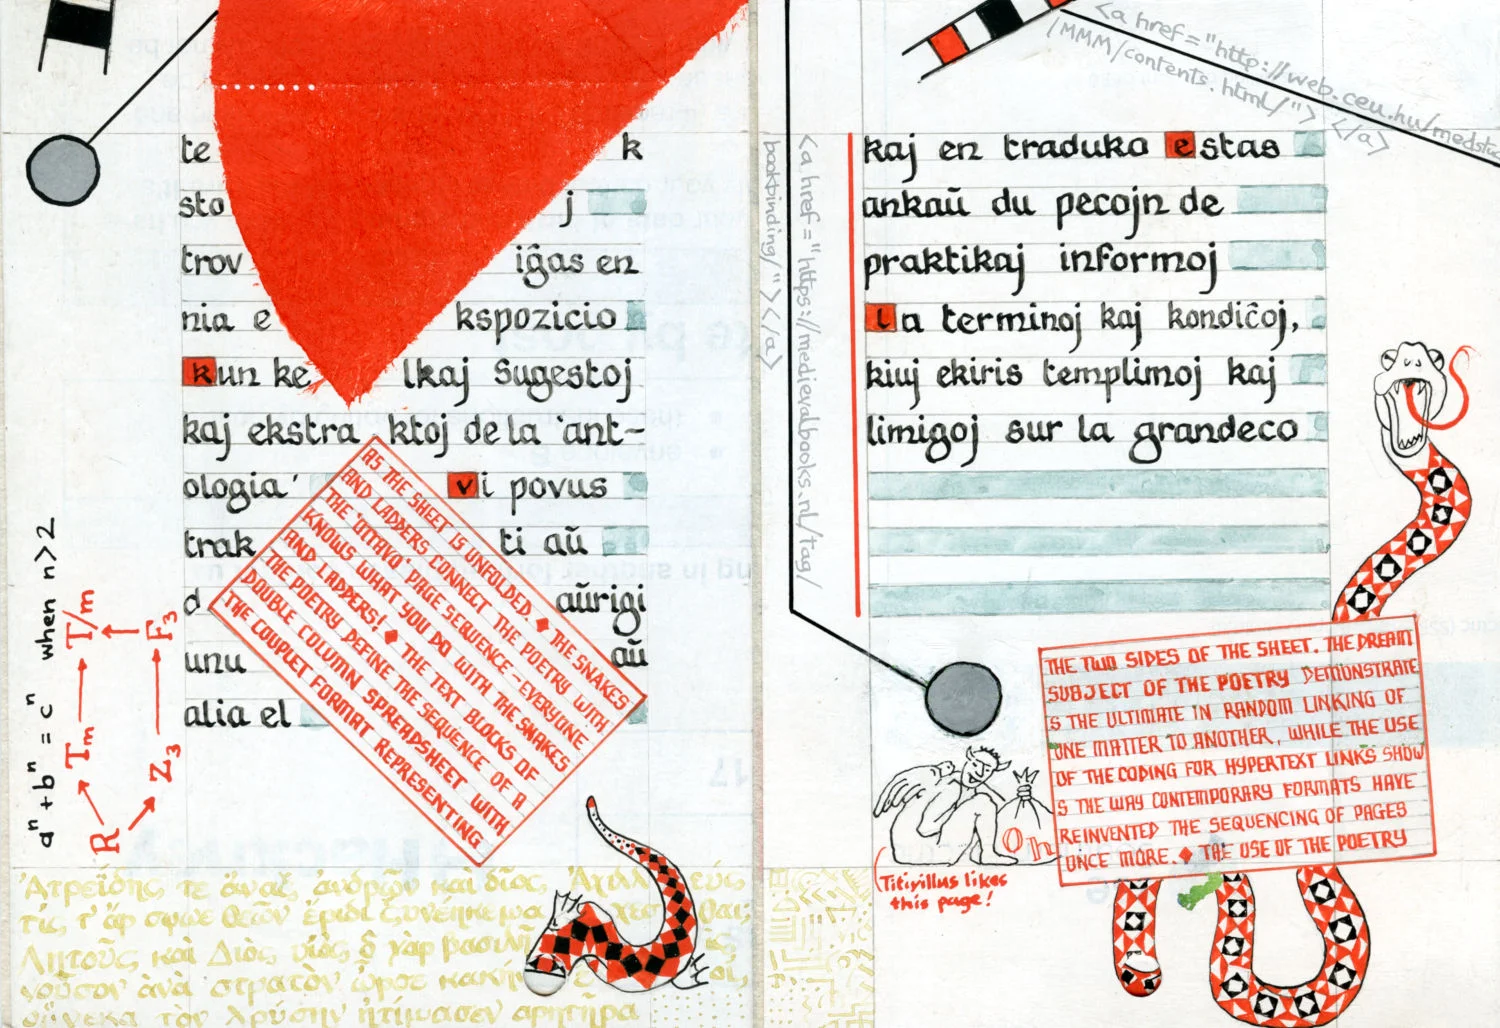 te k
sto j
trov iĝas en
nia e kspozicio
kun ke lkaj sugestoj
kaj ekstra ktoj de la 'ant-
ologia' vi povus
trak ti aŭ
d aŭrigi
unu aŭ
alia el
AS THE SHEET IS UNFOLDED. ♦ THE SNAKES
AND LADDERS CONNECT THE POETRY WITH
THE 'OTTAVO' PAGE SEQUENCE – EVERYONE
KNOWS WHAT YOU DO WITH THE SNAKES
AND LADDERS! ♦ THE TEXT BLOCKS OF
THE POETRY DEFINE THE SEQUENCE OF A
DOUBLE COLUMN SPREADSHEET WITH
THE COUPLET FORMAT REPRESENTING
aⁿ + bⁿ = cⁿ when n>2
T/m F₃
Tₘ Z₃
R
Ἀτρεΐδης τε ἄναξ ἀνδρῶν καὶ δῖος Ἀχιλλ εύς
τίς τ' ἄρ σφωε θεῶν ἔριδι ξυνέηκε μα χεσ θαι;
Λητοῦς καὶ Διὸς υἱός ὃ γὰρ βασιλῆ
νοῦσον ἀνὰ στρατὸν ὦρσε κακήν
οὕνεκα τὸν Χρύσην ἠτίμασεν ἀρητῆρα
<a href="http://web.ceu.hu/medstu
/MMM/contents.html/"> </a>
<a href="https://medievalbooks.nl/tag/
bookbinding/"></a>
kaj en traduko estas
ankaŭ du pecojn de
praktikaj informoj
la terminoj kaj kondiĉoj,
kiuj ekiris templimoj kaj
limigoj sur la grandeco
On
Titivillus likes
this page!
THE TWO SIDES OF THE SHEET. THE DREAM
SUBJECT OF THE POETRY DEMONSTRATE
S THE ULTIMATE IN RANDOM LINKING OF
ONE MATTER TO ANOTHER, WHILE THE USE
OF THE CODING FOR HYPERTEXT LINKS SHOW
S THE WAY CONTEMPORARY FORMATS HAVE
REINVENTED THE SEQUENCING OF PAGES
ONCE MORE. ♦ THE USE OF THE POETRY